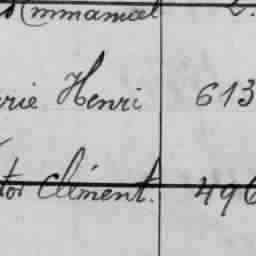 Emmanuel 2.
rie Henri 613
tor Clément. 496